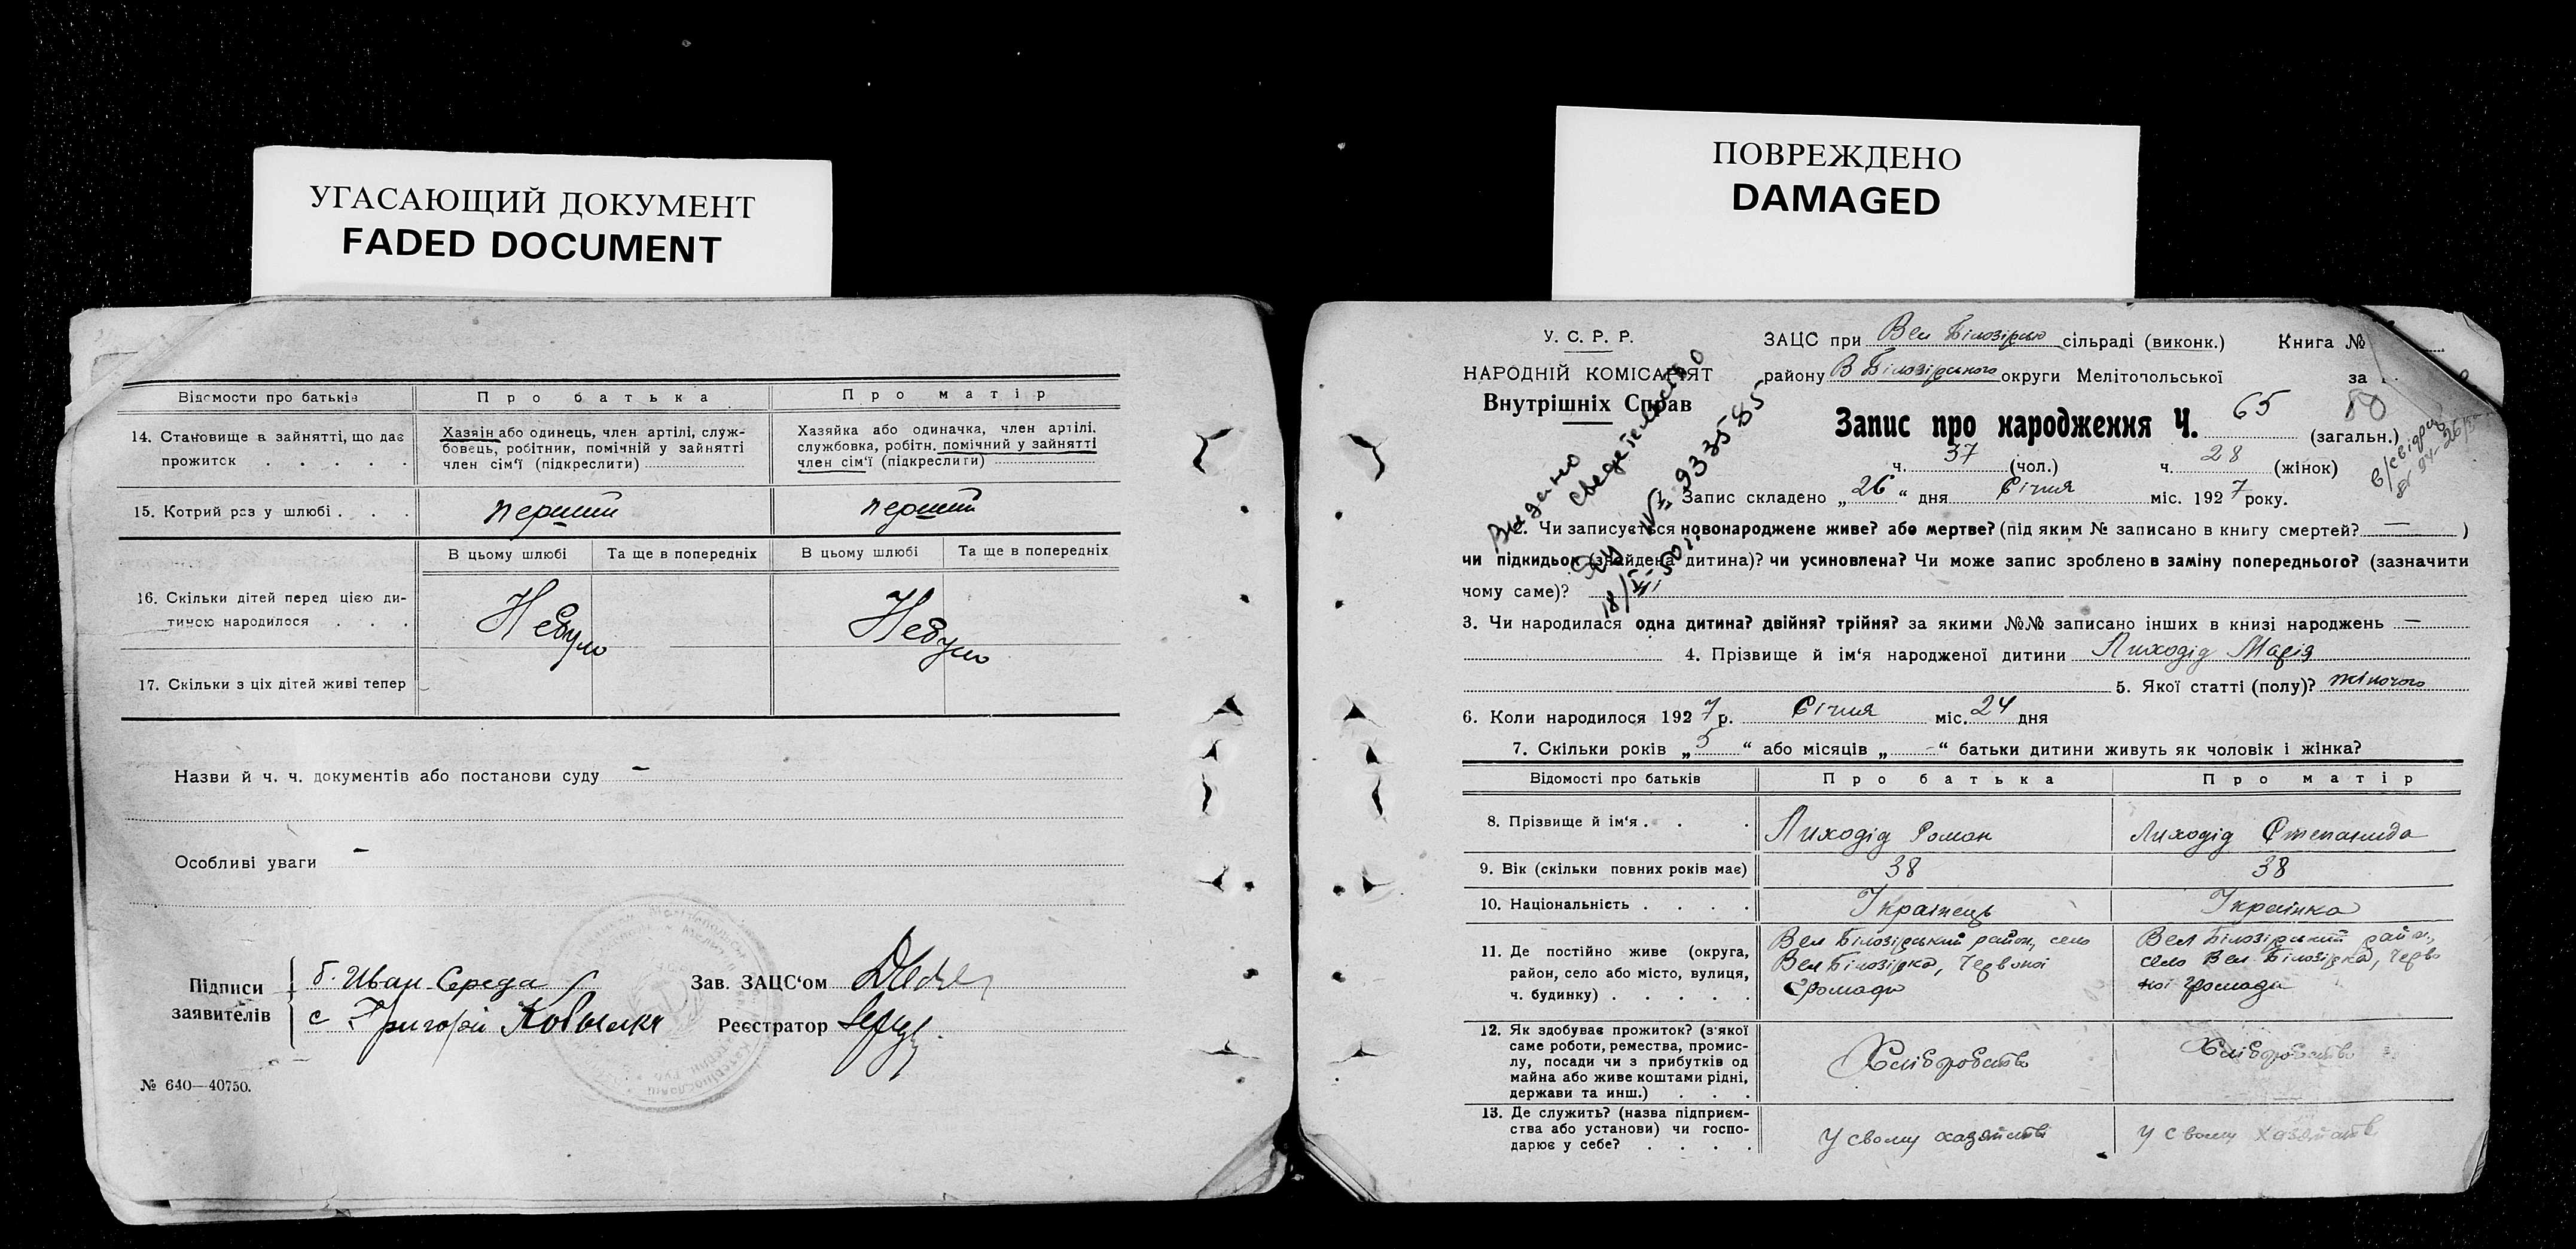 УГАСАЮЩИЙ ДОКУМЕНТ
FADED DOCUMENT
Відомости про батьків
Про батька
Про матір
14. Становище в зайнятті, що дає
прожиток . . . . .
Хазяїн або одинець, член артілі, служ-
бовець, робітник, помічній у зайнятті
член сім'ї (підкреслити)
Хазяйка або одиначка, член артілі,
службовка, робітн. помічний у зайнятті
член сім'ї (підкреслити)
15. Котрий раз у шлюбі . . .
перший
перший
В цьому шлюбі
Та ще в попередніх
В цьому шлюбі
Та ще в попередніх
16. Скільки дітей перед цією ди-
тиною народилося . . .
Небуло
Небуло
17. Скільки з ціх дітей живі тепер
Назви й ч. ч. документів або постанови суду —
Особливі уваги —
Підписи
заявителів
б. Иван Середа
с Григорій
Зав. ЗАЦС'ом
Реєстратор
№ 640—40750.
ПОВРЕЖДЕНО
DAMAGED
У. С. Р. Р.
НАРОДНІЙ КОМІСАРІЯТ
Внутрішніх Справ
ЗАЦС при Вел Білозірсько сільраді (виконк.) Книга №
району В Білозірського округи Мелітопольської за
Запис про народження Ч. 65 (загальн.)
ч. 37 (чол.) ч. 28 (жінок)
Выдано
сведетельство
933585
Запис складено „26“ дня Січня міс. 1927 року.
2. Чи записується новонароджене живе? або мертве? (під яким № записано в книгу смертей? — )
чи підкидьок (знайдена дитина)? чи усиновлена? Чи може запис зроблено в заміну попереднього? (зазначити
чому саме)?
3. Чи народилася одна дитина? двійня? трійня? за якими №№ записано інших в книзі народжень —
4. Прізвище й ім'я народженої дитини Лиходід Марія
5. Якої статті (полу)? жіночого
6. Коли народилося 1927 р. Січня міс. 24 дня
7. Скільки років „5“ або місяців „—“ батьки дитини живуть як чоловік і жінка?
Відомості про батьків
Про батька
Про матір
8. Прізвище й ім'я . . .
Лиходід Роман
Лиходід Степанида
9. Вік (скільки повних років має)
38
38
10. Національність . . . .
Українець
Українка
11. Де постійно живе (округа,
район, село або місто, вулиця,
ч. будинку) . . . . .
Вел Білозірський район, село
Вел Білозірка, Червоної
Громади
Вел Білозірський район,
село Вел Білозірка, Черво
ної громади
12. Як здобуває прожиток? (з'якої
саме роботи, ремества, промис-
лу, посади чи з прибутків од
майна або живе коштами рідні,
держави та инш.) . . .
Хліборобство
Хліборобство
13. Де служить? (назва підприєм-
ства або установи) чи госпо-
дарює у себе? . . . .
У свому хазяйстві
У свому хазяйстві